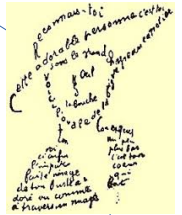 Reconnais-toi
Cette adorable personne c'est toi
Sous le grand chapeau canotier
Œil
la bouche
ovale de ta
Cou exquis
Voi
ci enfin
l'impar
faite image
de ton buste a
doré vu comme
à travers un nuage
Un peu
plus bas
c'est ton
coeur
qui
bat